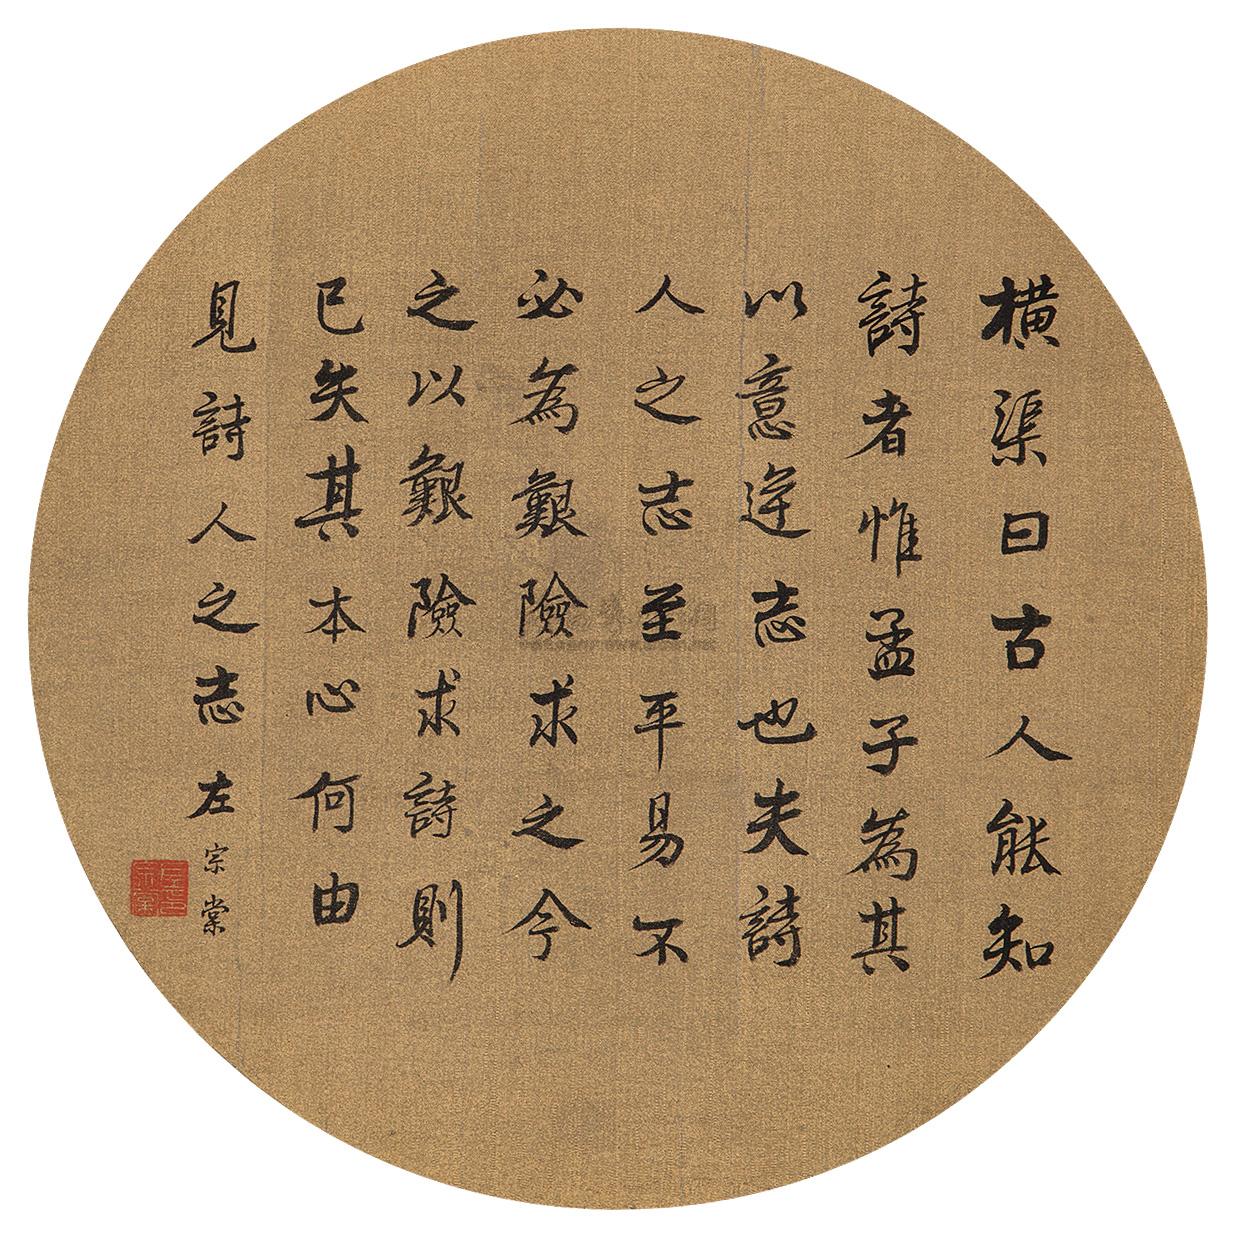 橫渠曰古人能知
詩者惟孟子為其
以意逆志也夫詩
人之志至平易不
必為艱險求之今
之以艱險求詩則
已失其本心何由
見詩人之志左宗棠